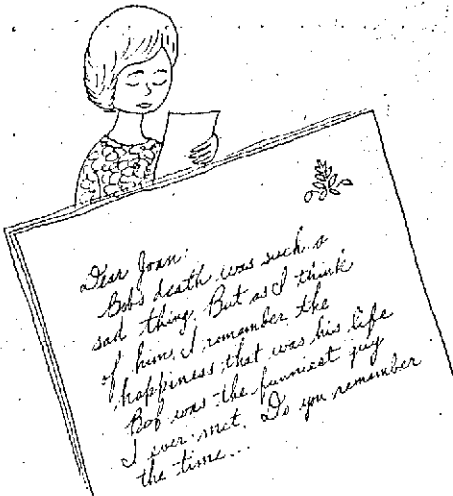 Dear Joan:
Bob's death was such a
sad thing. But as I think
of him, I remember the
happiness that was his life
Bob was the funniest guy
I ever met. Do you remember
the time...